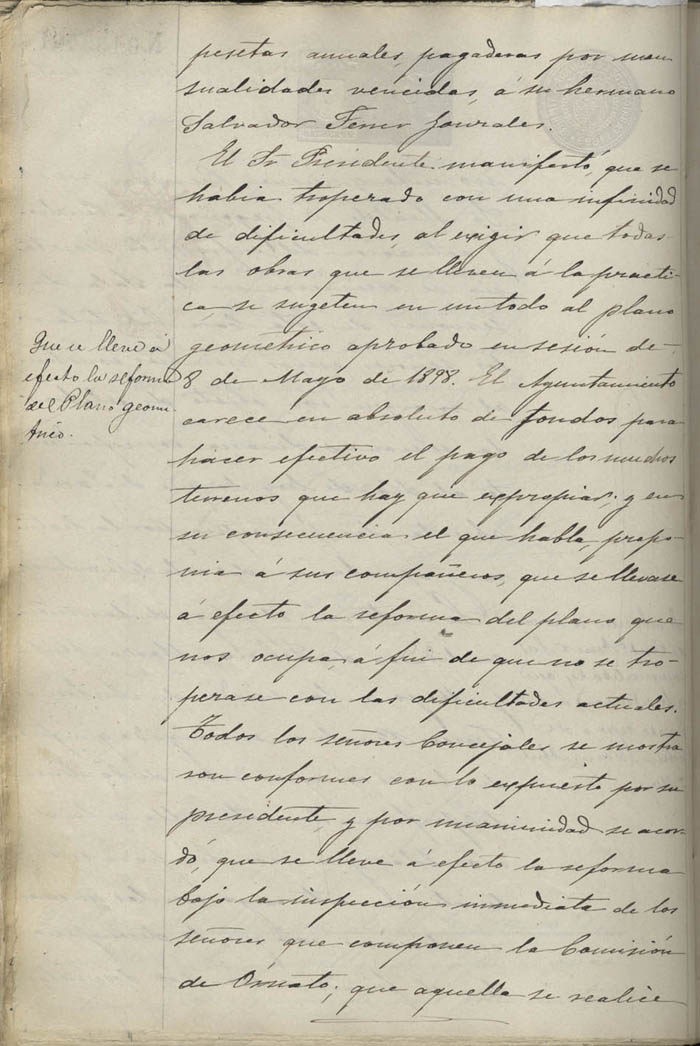 pesetas anuales, pagaderas por men
sualidades vencidas, á su hermano
Salvador Ferrer Gonzales.
El Sr Presidente manifestó, que se
habia troperado con una infinidad
de dificultades, al exigir que todas
las obras que se lleven á la practi
ca, se sugeten en un todo al plano
geométrico aprobado en sesión de
8 de Mayo de 1898. El Ayuntamiento
carece en absoluto de fondos para
hacer efectivo el pago de los muchos
terrenos que hay que expropiar, y en
su consecuencia el que habla, propo
nia á sus compañeros, que se llevase
á efecto la reforma del plano que
nos ocupa, á fin de que no se tro
perase con las dificultades actuales.
Todos los señores Concejales se mostra
ron conformes con lo expuesto por su
presidente, y por unanimidad se acor
dó, que se lleve á efecto la reforma
bajo la inspección inmediata de los
señores que componen la Comisión
de Ornato; que aquella se realice
Que se lleve á
efecto la reforma
del Plano geomé
trico.